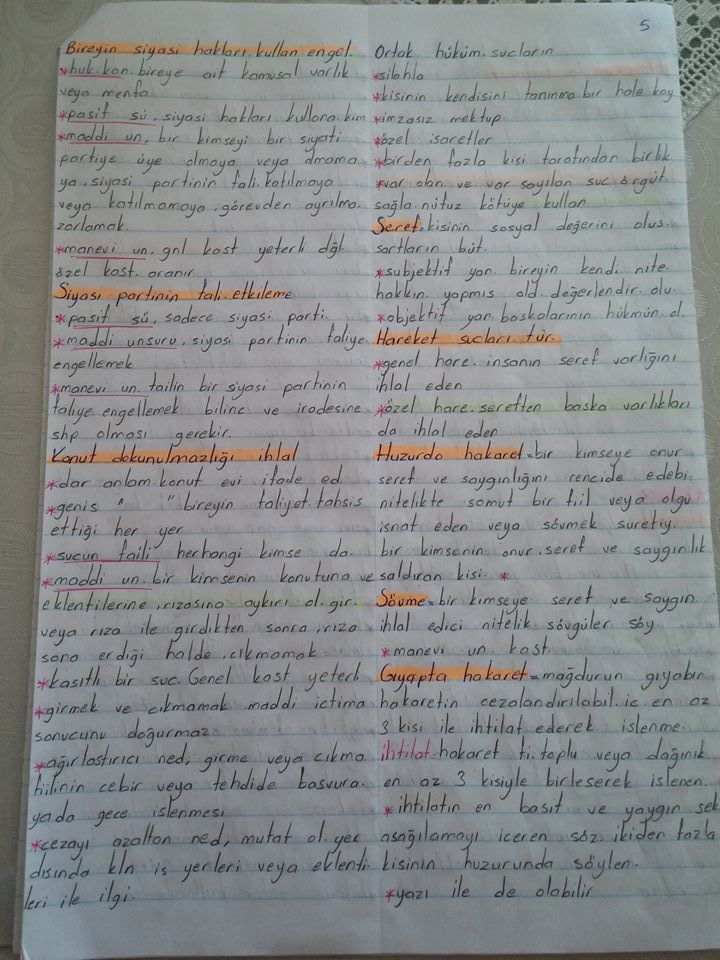 5
Bireyin siyasi hakları.kullan engel.
*huk.kon.bireye ait kamusal varlık
veya menfa
*pasif sü.siyasi hakları kullana.kim
*maddi un. bir kimseyi bir siyati
partiye üye olmaya veya olmama
ya.siyasi partinin fali.katılmaya
veya katılmamaya.görevden ayrılma.
zorlamak.
*manevi un. gnl kast yeterli dğl
özel kast. aranır
Siyasi partinin fali.etkileme
*pasif sü. sadece siyasi parti.
*maddi unsuru. siyasi partinin faliye
engellemek
*manevi un.failin bir siyasi partinin
faliye engellemek biline ve iradesine
shp olması gerekir.
Konut dokunulmazlığı ihlal
*dar anlam.konut evi ifade ed
*genis " " bireyin faliyet tahsis
ettiği her yer
*sucun faili herhangi kimse da.
*maddi un.bir kimsenin konutuna ve
eklentilerine.rızasına aykırı ol.gir.
veya rıza ile girdikten sonra.rıza
sona erdiği halde.cıkmamak
*kasıtlı bir suc. Genel kast yeterli
*girmek ve cıkmamak maddi ictima
sonucunu doğurmaz
*ağırlastırıcı ned, girme veya cıkma
fiilinin cebir veya tehdide basvura.
yada gece islenmesi
*cezayı azaltan ned, mutat ol.gec
dısında kln is yerleri veya eklenti
leri ile ilgi.
Ortak hüküm.sucların
*silahla
*kisinin kendisini tanınma bir hale koy
*imzasız mektup
*özel isaretler
*birden fazla kisi tarafından birlik
*var olan ve var sayılan suc örgüt
sağla.nüfuz kötüye kullan
Seref.kisinin sosyal değerini olus.
sartların büt.
*subjektif yan.bireyin kendi nite
hakkın yapmıs old değerlendir. olu.
*objektif yan.baskalarının hükmün d.
Hareket sucları tür.
*genel hare.insanın seref varlığını
ihlal eden
*özel hare.sereften baska varlıkları
da ihlal eden
Huzurda hakaret=bir kimseye onur
seref ve saygınlığını rencide edebi.
nitelikte somut bir fiil veya olgu
isnat eden veya sövmek suretiy.
bir kimsenin onur.seref ve saygınlık
saldıran kisi. *
Sövme=bir kimseye seref ve saygın
ihlal edici nitelik sövgüler söy
*manevi un kast.
Gıyapta hakaret=mağdurun gıyabın
hakaretin cezalandırılabil.ic en az
3 kisi ile ihtilat ederek islenme.
ihtilat-hakaret fi.toplu veya dağınık
en az 3 kisiyle birleserek islenen.
*ihtilatın en basit ve yaygın sek
asağılamayı iceren söz.ikiden fazla
kisinin huzurunda söylen.
*yazı ile de olabilir